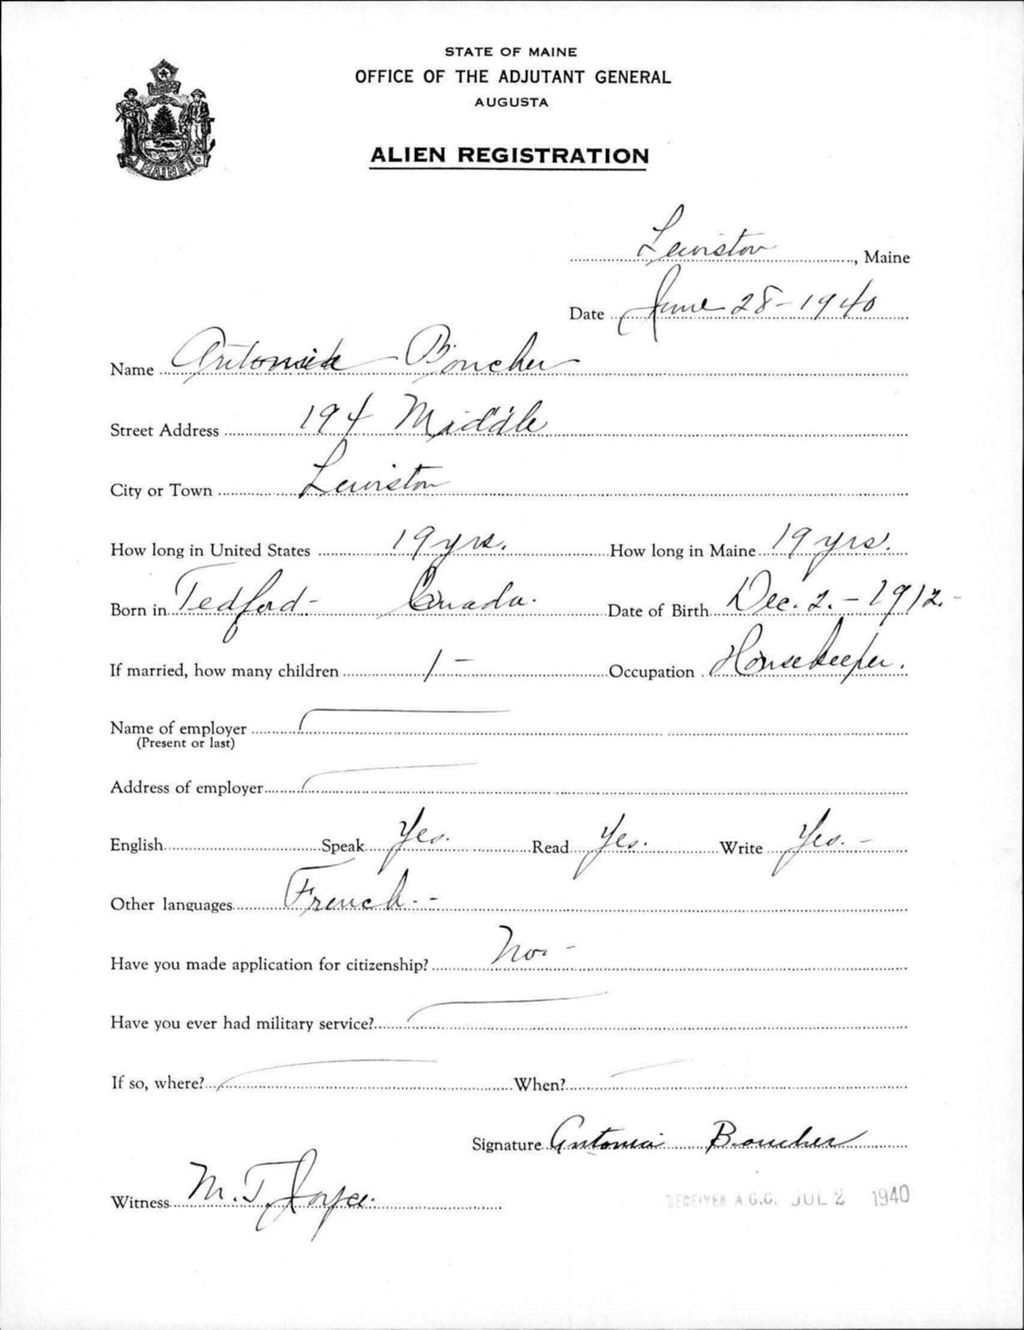 STATE OF MAINE
OFFICE OF THE ADJUTANT GENERAL
AUGUSTA
MAINE
ALIEN REGISTRATION
Lewiston, Maine
Date June 28-1940
Name Boucher
Street Address 194 Middle
City or Town Lewiston
How long in United States 19 yrs. How long in Maine 19 yrs.
Born in Tedford - Canada. Date of Birth Dec. 2. - 1912. -
If married, how many children 1 - Occupation Housekeeper.
Name of employer
(Present or last)
Address of employer
English Speak Yes. Read Yes. Write Yes. -
Other languages French. - -
Have you made application for citizenship? No. -
Have you ever had military service?
If so, where? When?
Signature Antonia Boucher
Witness M. T. Joyce.
RECEIVED A.G.O. JUL 2 1940